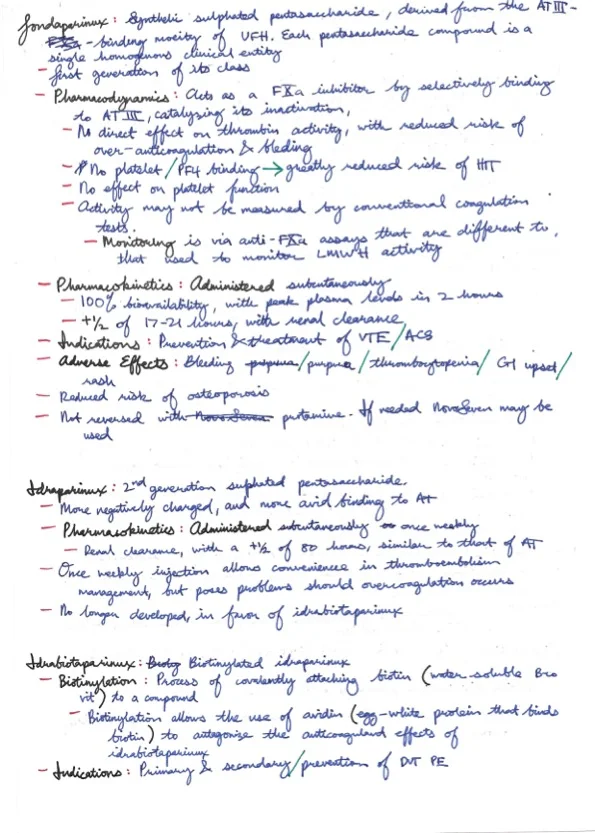 Fondaparinux: Synthetic sulphated pentasaccharide, derived from the AT III-
FXa -binding moeity of UFH. Each pentasaccharide compound is a
single homogenous clinical entity
- first generation of its class
- Pharmacodynamics: Acts as a FXa inhibitor by selectively binding
to AT III, catalyzing its inactivation,
- No direct effect on thrombin activity, with reduced risk of
over-anticoagulation & bleeding
- No platelet/PF4 binding → greatly reduced risk of HIT
- No effect on platelet function
- Activity may not be measured by conventional coagulation
tests.
- Monitoring is via anti-FXa assays that are different to,
that used to monitor LMWH activity
- Pharmacokinetics: Administered subcutaneously
- 100% bioavailability, with peak plasma levels in 2 hours
- t1/2 of 17-21 hours, with renal clearance
- Indications: Prevention & treatment of VTE/ACS
- Adverse Effects: Bleeding purpura/purpura/thrombocytopenia/ GI upset/
rash
- Reduced risk of osteoporosis
- Not reversed with NovoSeven protamine. If needed NovoSeven may be
used
Idraparinux: 2nd generation sulphated pentasaccharide.
- More negatively charged, and more avid binding to AT
- Pharmacokinetics: Administered subcutaneously once weekly
- Renal clearance, with a t1/2 of 80 hours, similar to that of AT
- Once weekly injection allows convenience in thromboembolism
management, but poses problems should overcoagulation occurs
- No longer developed, in favor of idrabiotaparinux
Idrabiotaparinux: Biotinylated idraparinux
- Biotinylation: Process of covalently attaching biotin (water-soluble Bco
vit) to a compound
- Biotinylation allows the use of avidin (egg-white protein that binds
biotin) to antagonise the anticoaguland effects of
idrabiotaparinux
- Indications: Primary & secondary/prevention of DVT PE